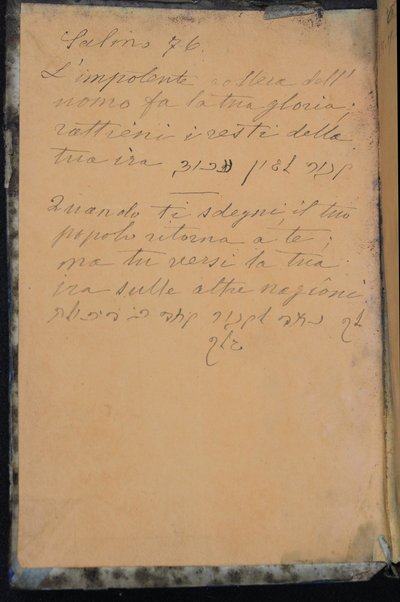 Salmo 76.
L'impotente collera dell'
uomo fa la tua gloria;
rattieni i resti della
tua ira
Quando ti sdegni, il tuo
popolo ritorna a te;
ma tu versi la tua
ira sulle altre nazioni